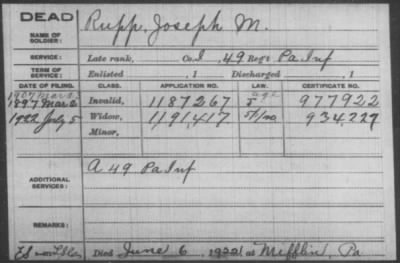 DEAD
NAME OF SOLDIER:
Rupp, Joseph M.
SERVICE: Late rank, Co. I, 49 Regt Pa Inf
TERM OF SERVICE: Enlisted , 1 Discharged , 1
DATE OF FILING. CLASS. APPLICATION NO. LAW. CERTIFICATE NO.
age
1897 Mar 2 Invalid, 1187267 977922
1922 July 5 Widow, 1191417 934,227
Minor,
ADDITIONAL SERVICES:
A 49 Pa Inf
REMARKS:
Died June 6, 1922 at Mifflin, Pa